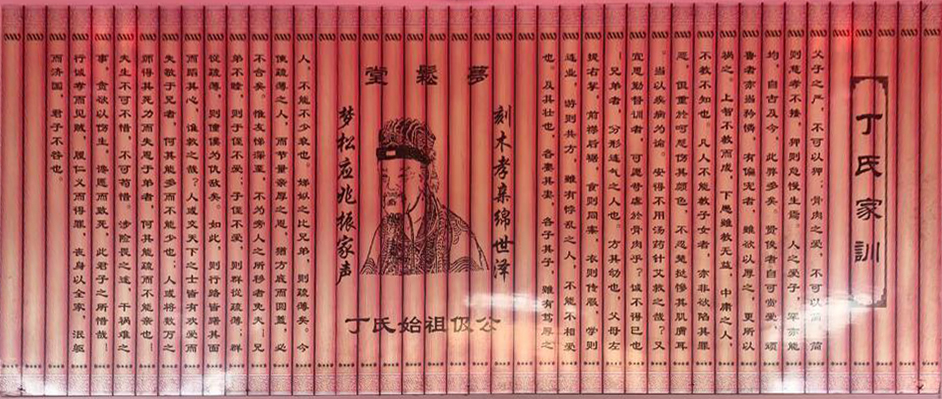 丁氏家訓
父子之严，不可以狎；骨肉之爱，不可以简。简
则慈孝不接，狎则怠慢生焉。人之爱子，罕亦能
均，自古及今，此弊多矣。贤俊者自可赏爱，顽
鲁者亦当矜怜，有偏宠者，雖欲以厚之，更所以
祸之。上智不教而成，下愚雖教无益，中庸之人，
不教不知也。凡人不能教子女者，亦非欲陷其罪
恶，但重於呵怒伤其颜色，不忍楚挞惨其肌膚耳
。当以疾病为谕，安得不用汤药针艾救之哉？又
宜思勤督训者，可愿苛虐於骨肉乎？诚不得已也
！兄弟者，分形连气之人也。方其幼也，父母左
提右挈，前襟后裾，食则同案，衣则传服，学则
连业，游则共方，雖有悖乱之人，不能不相爱
也。及其壮也，各妻其妻，各子其子，雖有笃厚之
夢鬆堂
刻木孝亲绵世泽
梦松应兆振家声
丁氏始祖伋公
人，不能不少衰也。娣姒之比兄弟，则疏薄矣。今
使疏薄之人，而节量亲厚之恩，猶方底而圆蓋，必
不合矣。惟友悌深至，不为旁人之所移者免夫！兄
弟不睦，则子侄不爱；子侄不爱，则群從疏薄；群
從疏薄，则僮僕为仇敌矣。如此，则行路皆踖其面
而蹈其心，谁救之哉？人或交天下之士皆有欢爱而
失敬于兄者，何其能多而不能少也；人或将数万之
师得其死力而失恩于弟者，何其能疏而不能亲也！
夫生不可不惜，不可苟惜。涉险畏之途，干祸难之
事，贪欲以伤生，谗慝而致死，此君子之所惜哉！
行诚孝而见贼，履仁义而得罪，丧身以全家，泯躯
而济国，君子不咎也。